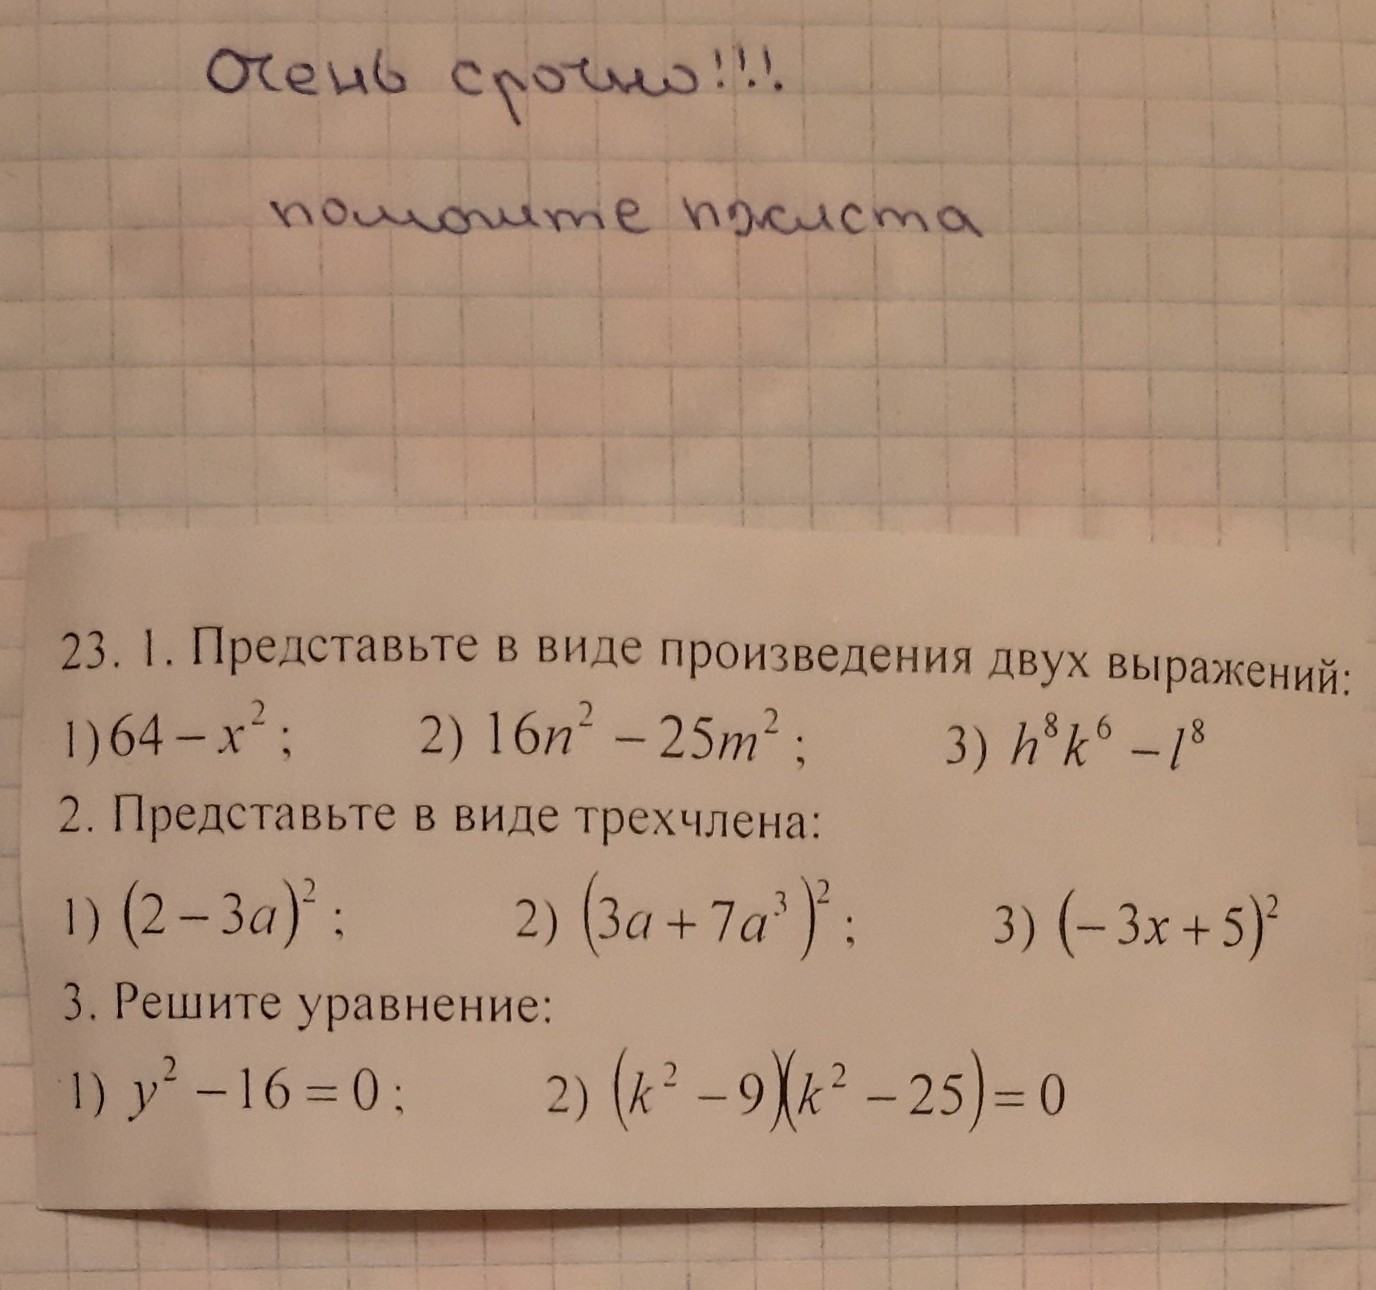 Очень срочно!!!
помогите пжлста
23. 1. Представьте в виде произведения двух выражений:
1) 64 – x² ; 2) 16n² – 25m² ; 3) h⁸k⁶ – l⁸
2. Представьте в виде трехчлена:
1) (2 – 3a)² ; 2) (3a + 7a³)² ; 3) (– 3x + 5)²
3. Решите уравнение:
1) y² – 16 = 0 ; 2) (k² – 9)(k² – 25) = 0